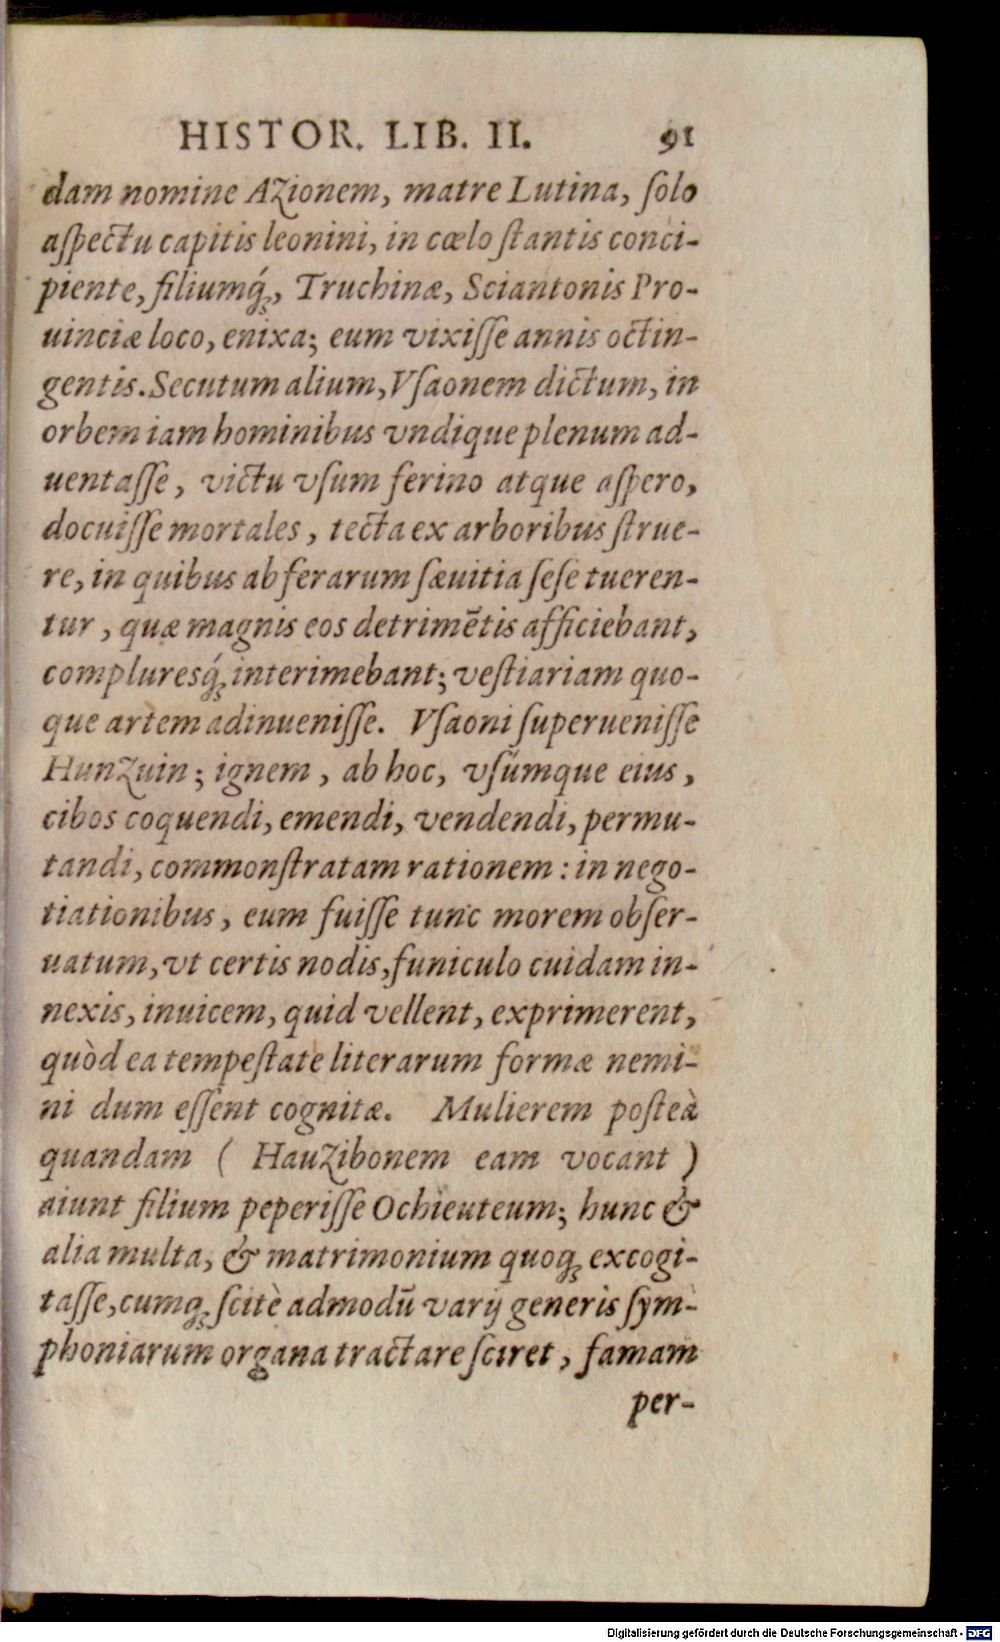 HISTOR. LIB. II. 91
dam nomine Azionem, matre Lutina, ſolo
aſpectu capitis leonini, in cœlo ſtantis conci-
piente, filiumq́ꝫ, Truchinæ, Sciantonis Pro-
uinciæ loco, enixa; eum vixiſſe annis octin-
gentis. Secutum alium, Vſaonem dictum, in
orbem iam hominibus vndique plenum ad-
uentaſſe, victu vſum ferino atque aſpero,
docuiſſe mortales, tecta ex arboribus ſtrue-
re, in quibus ab ferarum ſæuitia ſeſe tueren-
tur, quæ magnis eos detrimẽtis afficiebant,
complureſq́ꝫ interimebant; veſtiariam quo-
que artem adinueniſſe. Vſaoni ſuperueniſſe
Hunzuin; ignem, ab hoc, vſúmque eius,
cibos coquendi, emendi, vendendi, permu-
tandi, commonſtratam rationem: in nego-
tiationibus, eum fuiſſe tunc morem obſer-
uatum, vt certis nodis, funiculo cuidam in-
nexis, inuicem, quid vellent, exprimerent,
quòd ea tempeſtate literarum formæ nemi-
ni dum eſſent cognitæ. Mulierem poſteà
quandam ( Hauzibonem eam vocant )
aiunt filium peperiſſe Ochieuteum; hunc &
alia multa, & matrimonium quoqꝫ excogi-
taſſe, cumqꝫ ſcitè admodū varij generis ſym-
phoniarum organa tractare ſciret, famam
per-
Digitalisierung gefördert durch die Deutsche Forschungsgemeinschaft - DFG